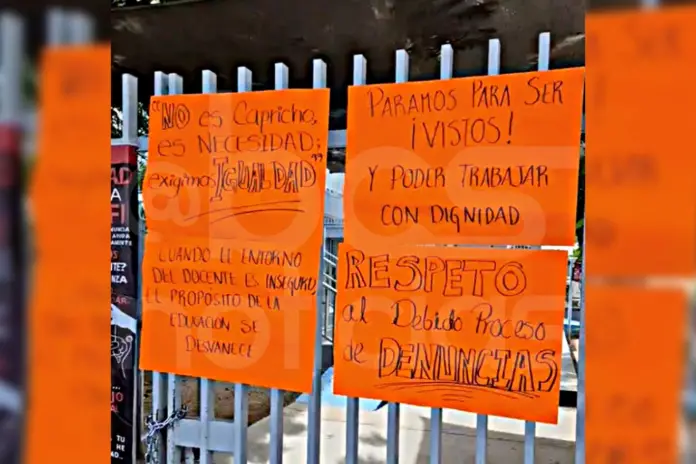 "NO es Capricho,
es NECESIDAD;
exigimos IGUALDAD"
CUANDO EL ENTORNO
DEL DOCENTE ES INSEGURO
EL PROPOSITO DE LA
EDUCACIÓN SE
DESVANECE
PARAMOS PARA SER
¡VISTOS!
Y PODER TRABAJAR
CON DIGNIDAD
RESPETO
al Debido Proceso
de DENUNCIAS